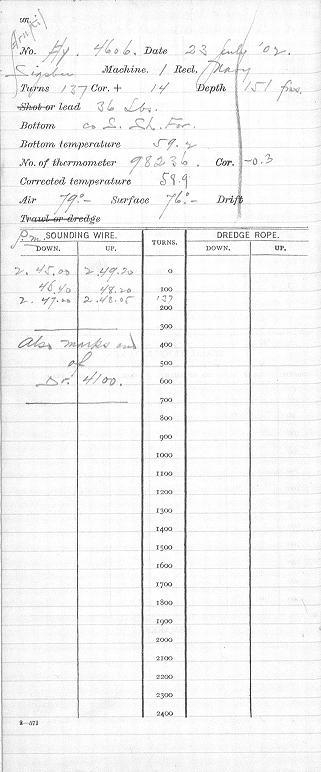 No. Hy. 4606. Date 23 July '02.
Sigsbee Machine. / Reel, Navy
Turns 137 Cor. + 14 Depth 151 fms.
Shot or lead 36 Lbs.
Bottom co. S. Sh. For.
Bottom temperature 59.2
No. of thermometer 98236. Cor. -0.3
Corrected temperature 58.9
Air 79°- Surface 76°- Drift
Trawl or dredge
P.m. SOUNDING WIRE. TURNS. DREDGE ROPE.
DOWN. UP. DOWN. UP.
2. 45.00 2 49.20 0
46.40 48.20 100
2. 47.00 2.48.05 137
200
300
Also marks end 400
of 500
Dr. 4100. 600
700
800
900
1000
1100
1200
1300
1400
1500
1600
1700
1800
1900
2000
2100
2200
2300
2400
2—571